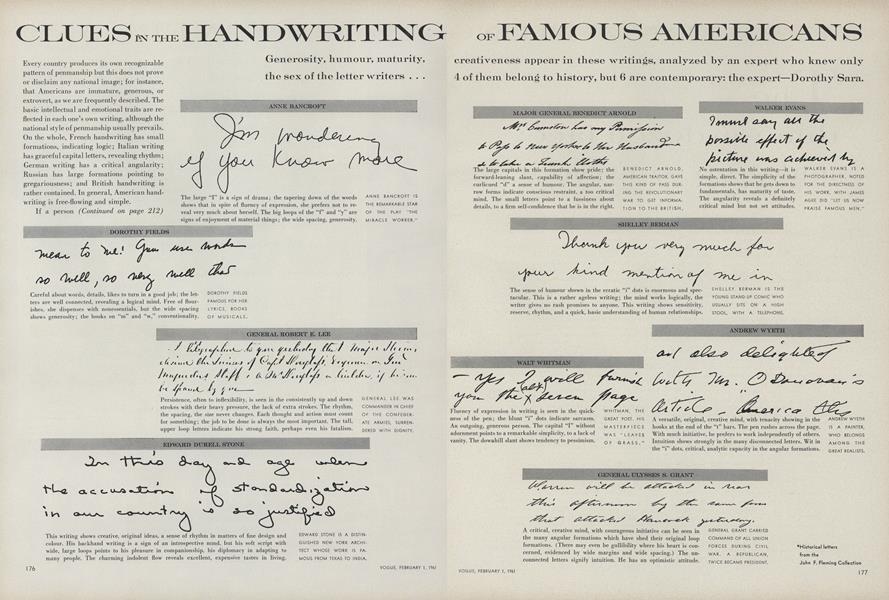 CLUES IN THE HANDWRITING OF FAMOUS AMERICANS
Generosity, humour, maturity,
the sex of the letter writers . . .
creativeness appear in these writings, analyzed by an expert who knew only
4 of them belong to history, but 6 are contemporary: the expert—Dorothy Sara.
Every country produces its own recognizable
pattern of penmanship but this does not prove
or disclaim any national image; for instance,
that Americans are immature, generous, or
extrovert, as we are frequently described. The
basic intellectual and emotional traits are re-
flected in each one's own writing, although the
national style of penmanship usually prevails.
On the whole, French handwriting has small
formations, indicating logic; Italian writing
has graceful capital letters, revealing rhythm;
German writing has a critical angularity;
Russian has large formations pointing to
gregariousness; and British handwriting is
rather contained. In general, American hand-
writing is free-flowing and simple.
If a person (Continued on page 212)
ANNE BANCROFT
I'm wondering
if you know more
The large "I" is a sign of drama; the tapering down of the words
shows that in spite of fluency of expression, she prefers not to re-
veal very much about herself. The big loops of the "f" and "y" are
signs of enjoyment of material things; the wide spacing, generosity.
ANNE BANCROFT IS
THE REMARKABLE STAR
OF THE PLAY "THE
MIRACLE WORKER."
DOROTHY FIELDS
mean to me! You use words
so well, so very well that
Careful about words, details, likes to turn in a good job; the let-
ters are well connected, revealing a logical mind. Free of flour-
ishes, she dispenses with nonessentials, but the wide spacing
shows generosity; the hooks on "m" and "w," conventionality.
DOROTHY FIELDS
FAMOUS FOR HER
LYRICS, BOOKS
OF MUSICALS.
GENERAL ROBERT E. LEE
I telegraphed to you yesterday that Major
desired the services of Capt
Staff
by you
Persistence, often to inflexibility, is seen in the consistently up and down
strokes with their heavy pressure, the lack of extra strokes. The rhythm,
the spacing, the size never changes. Each thought and action must count
for something; the job to be done is always the most important. The tall,
upper loop letters indicate his strong faith, perhaps even his fatalism.
GENERAL LEE WAS
COMMANDER IN CHIEF
OF THE CONFEDER-
ATE ARMIES, SURREN-
DERED WITH DIGNITY.
EDWARD DURELL STONE
In this day and age when
the accusation of standardization
in our country is so justified
This writing shows creative, original ideas, a sense of rhythm in matters of fine design and
colour. His backhand writing is a sign of an introspective mind, but his soft script with
wide, large loops points to his pleasure in companionship, his diplomacy in adapting to
many people. The charming indolent flow reveals excellent, expensive tastes in living.
EDWARD STONE IS A DISTIN-
GUISHED NEW YORK ARCHI-
TECT WHOSE WORK IS FA-
MOUS FROM TEXAS TO INDIA.
176
VOGUE, FEBRUARY 1, 1961
MAJOR GENERAL BENEDICT ARNOLD
Mrs has my Permission
to Pass to New York to Her Husband
& to take a Trunk
The large capitals in this formation show pride; the
forward-leaning slant, capability of affection; the
curlicued "d" a sense of humour. The angular, nar-
row forms indicate conscious restraint, a too critical
mind. The small letters point to a fussiness about
details, to a firm self-confidence that he is in the right.
BENEDICT ARNOLD,
AMERICAN TRAITOR, GAVE
THIS KIND OF PASS DUR-
ING THE REVOLUTIONARY
WAR TO GET INFORMA-
TION TO THE BRITISH.
WALKER EVANS
I must say all the
possible effect of the
picture was achieved by
No ostentation in this writing—it is
simple, direct. The simplicity of the
formations shows that he gets down to
fundamentals, has maturity of taste.
The angularity reveals a definitely
critical mind but not set attitudes.
WALKER EVANS IS A
PHOTOGRAPHER, NOTED
FOR THE DIRECTNESS OF
HIS WORK, WITH JAMES
AGEE DID "LET US NOW
PRAISE FAMOUS MEN."
SHELLEY BERMAN
Thank you very much for
your kind mention of me in
The sense of humour shown in the erratic "i" dots is enormous and spec-
tacular. This is a rather ageless writing; the mind works logically, the
writer gives no rash promises to anyone. This writing shows sensitivity,
reserve, rhythm, and a quick, basic understanding of human relationships.
SHELLEY BERMAN IS THE
YOUNG STAND-UP COMIC WHO
USUALLY SITS ON A HIGH
STOOL, WITH A TELEPHONE.
WALT WHITMAN
– Yes I will furnish
you the seven page
Fluency of expression in writing is seen in the quick-
ness of the pen; the blunt "i" dots indicate sarcasm.
An outgoing, generous person. The capital "I" without
adornment points to a remarkable simplicity, to a lack of
vanity. The downhill slant shows tendency to pessimism.
WHITMAN, THE
GREAT POET, HIS
MASTERPIECE
WAS "LEAVES
OF GRASS."
ANDREW WYETH
am also delighted
with Mr. O'Donovan's
Article America
A versatile, original, creative mind, with tenacity showing in the
hooks at the end of the "t" bars. The pen rushes across the page.
With much initiative, he prefers to work independently of others.
Intuition shows strongly in the many disconnected letters. Wit in
the "i" dots, critical, analytic capacity in the angular formations.
ANDREW WYETH
IS A PAINTER,
WHO BELONGS
AMONG THE
GREAT REALISTS.
GENERAL ULYSSES S. GRANT
Warren will be attacked in rear
this afternoon by the same force
that attacked Hancock yesterday.
A critical, creative mind, with courageous initiative can be seen in
the many angular formations which have shed their original loop
formations. (There may even be gullibility where his heart is con-
cerned, evidenced by wide margins and wide spacing.) The un-
connected letters signify intuition. He has an optimistic attitude.
GENERAL GRANT CARRIED
COMMAND OF ALL UNION
FORCES DURING CIVIL
WAR. A REPUBLICAN,
TWICE BECAME PRESIDENT.
*Historical letters
from the
John F. Fleming Collection
VOGUE, FEBRUARY 1, 1961
177